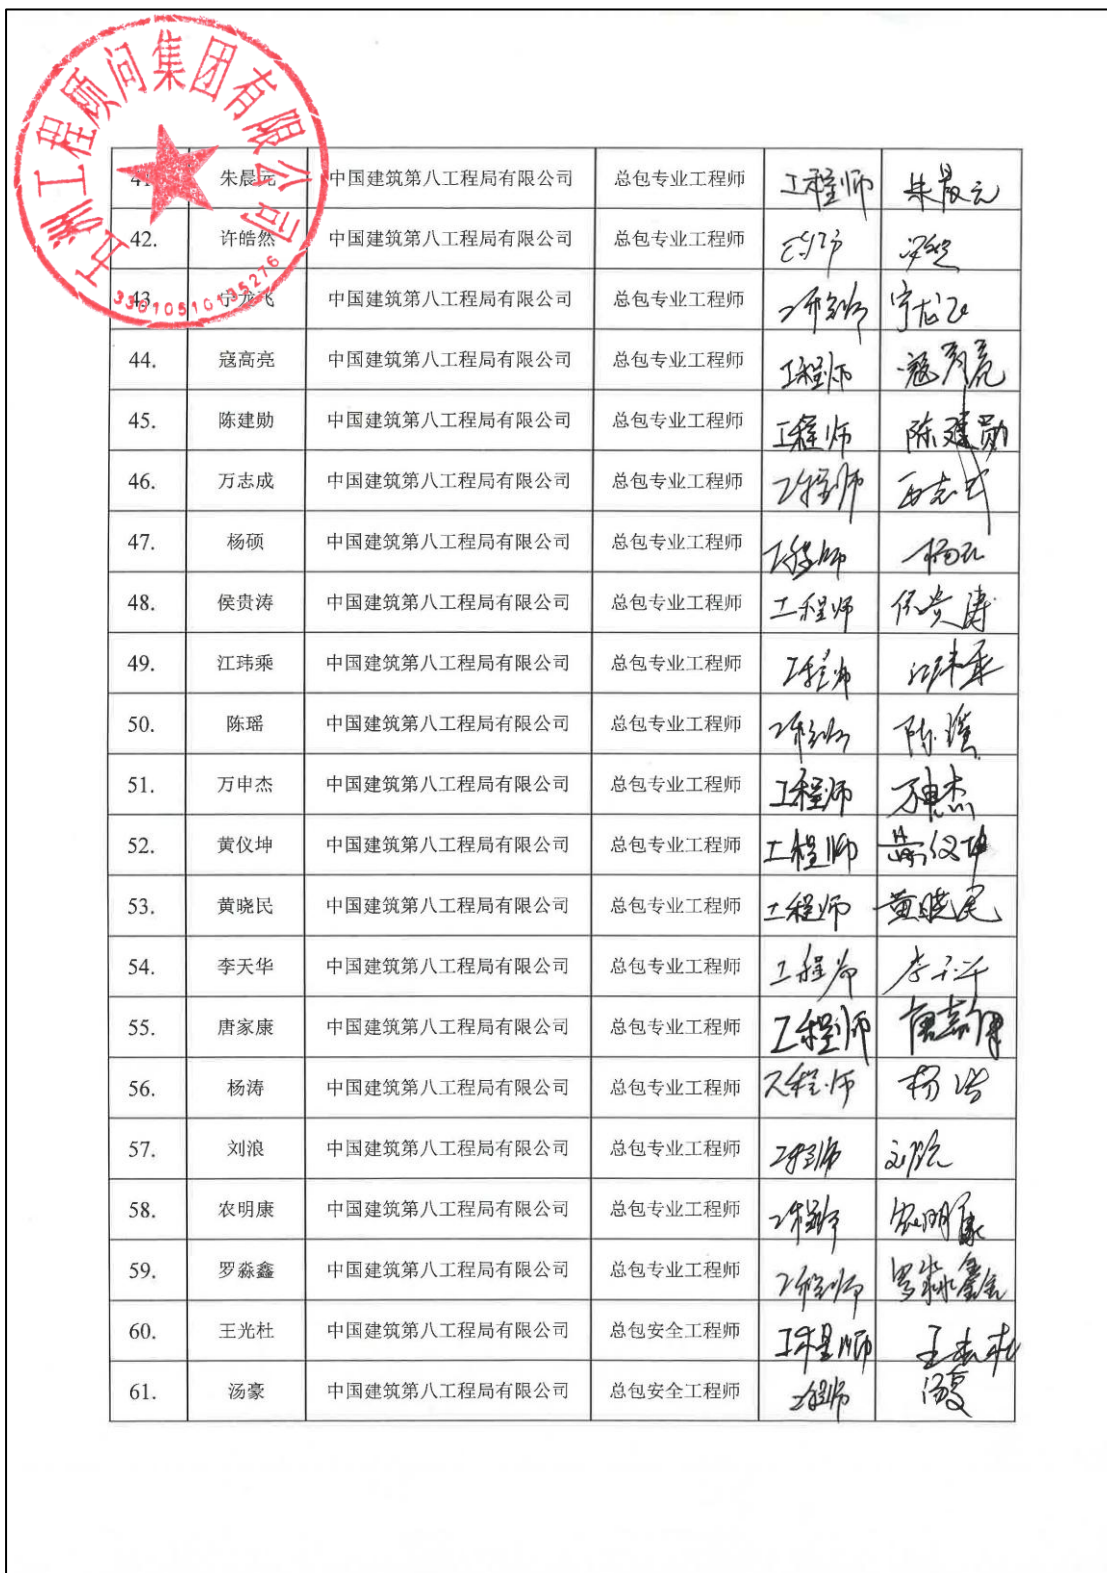 五洲工程顾问集团有限公司
33010510135276
41. 朱晨元 中国建筑第八工程局有限公司 总包专业工程师 工程师 朱晨元
42. 许皓然 中国建筑第八工程局有限公司 总包专业工程师
43. 宁龙飞 中国建筑第八工程局有限公司 总包专业工程师 工程师 宁龙飞
44. 寇高亮 中国建筑第八工程局有限公司 总包专业工程师 工程师 寇高亮
45. 陈建勋 中国建筑第八工程局有限公司 总包专业工程师 工程师 陈建勋
46. 万志成 中国建筑第八工程局有限公司 总包专业工程师 工程师 万志成
47. 杨硕 中国建筑第八工程局有限公司 总包专业工程师 工程师 杨硕
48. 侯贵涛 中国建筑第八工程局有限公司 总包专业工程师 工程师 侯贵涛
49. 江玮乘 中国建筑第八工程局有限公司 总包专业工程师 工程师 江玮乘
50. 陈瑶 中国建筑第八工程局有限公司 总包专业工程师 工程师 陈瑶
51. 万申杰 中国建筑第八工程局有限公司 总包专业工程师 工程师 万申杰
52. 黄仪坤 中国建筑第八工程局有限公司 总包专业工程师 工程师 黄仪坤
53. 黄晓民 中国建筑第八工程局有限公司 总包专业工程师 工程师 黄晓民
54. 李天华 中国建筑第八工程局有限公司 总包专业工程师 工程师 李天华
55. 唐家康 中国建筑第八工程局有限公司 总包专业工程师 工程师 唐家康
56. 杨涛 中国建筑第八工程局有限公司 总包专业工程师 工程师 杨涛
57. 刘浪 中国建筑第八工程局有限公司 总包专业工程师 工程师 刘浪
58. 农明康 中国建筑第八工程局有限公司 总包专业工程师 工程师 农明康
59. 罗淼鑫 中国建筑第八工程局有限公司 总包专业工程师 工程师 罗淼鑫
60. 王光杜 中国建筑第八工程局有限公司 总包安全工程师 工程师 王光杜
61. 汤豪 中国建筑第八工程局有限公司 总包安全工程师 工程师 汤豪